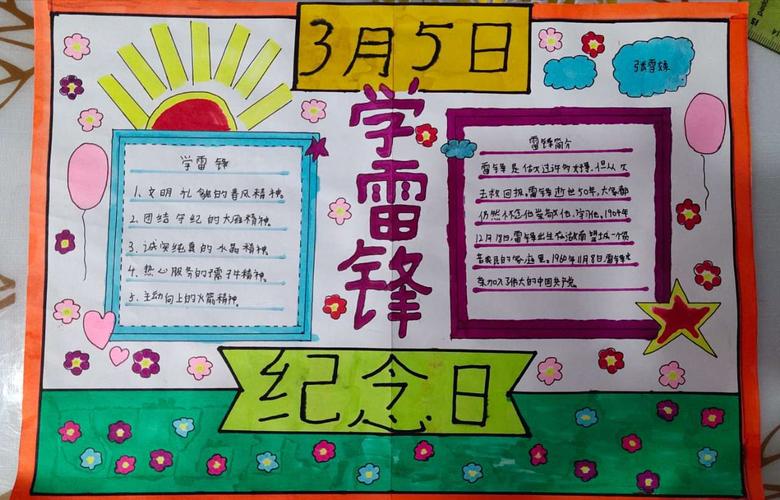 3月5日
张雪
学雷锋
纪念日
学雷锋
1、文明礼貌的春风精神。
2、团结守纪的大雁精神。
3、诚实纯真的水晶精神。
4、热心服务的孺子牛精神。
5、主动向上的火箭精神。
雷锋简介
雷锋是做过许多好事,但从不
去救回报。雷锋逝世50年,大家都
仍然怀念他崇敬他,学习他。1940年
12月18日,雷锋出生在湖南望城一个
苦农民的家庭里。1960年11月8日,雷锋
加入了伟大的中国共产党。